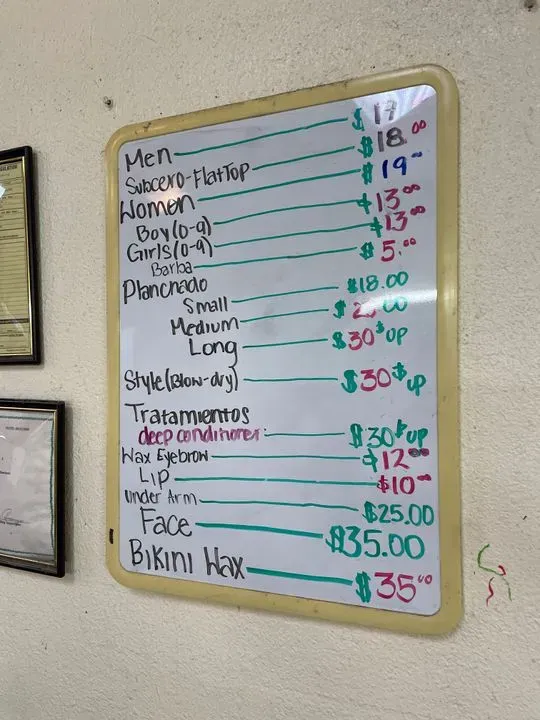 Men $ 17
Subcero-Flat Top $18.00
Women $ 19
Boy (0-9) $13.00
Girls (0-9) $13.00
Barba $ 5.00
Planchado
Small $18.00
Medium $ 00
Long $30$ up
Style (Blow-dry) $30$ up
Tratamientos
deep conditioner: $30$ up
Wax Eyebrow $12.00
Lip $10.00
Under Arm $25.00
Face $35.00
Bikini Wax $35.00